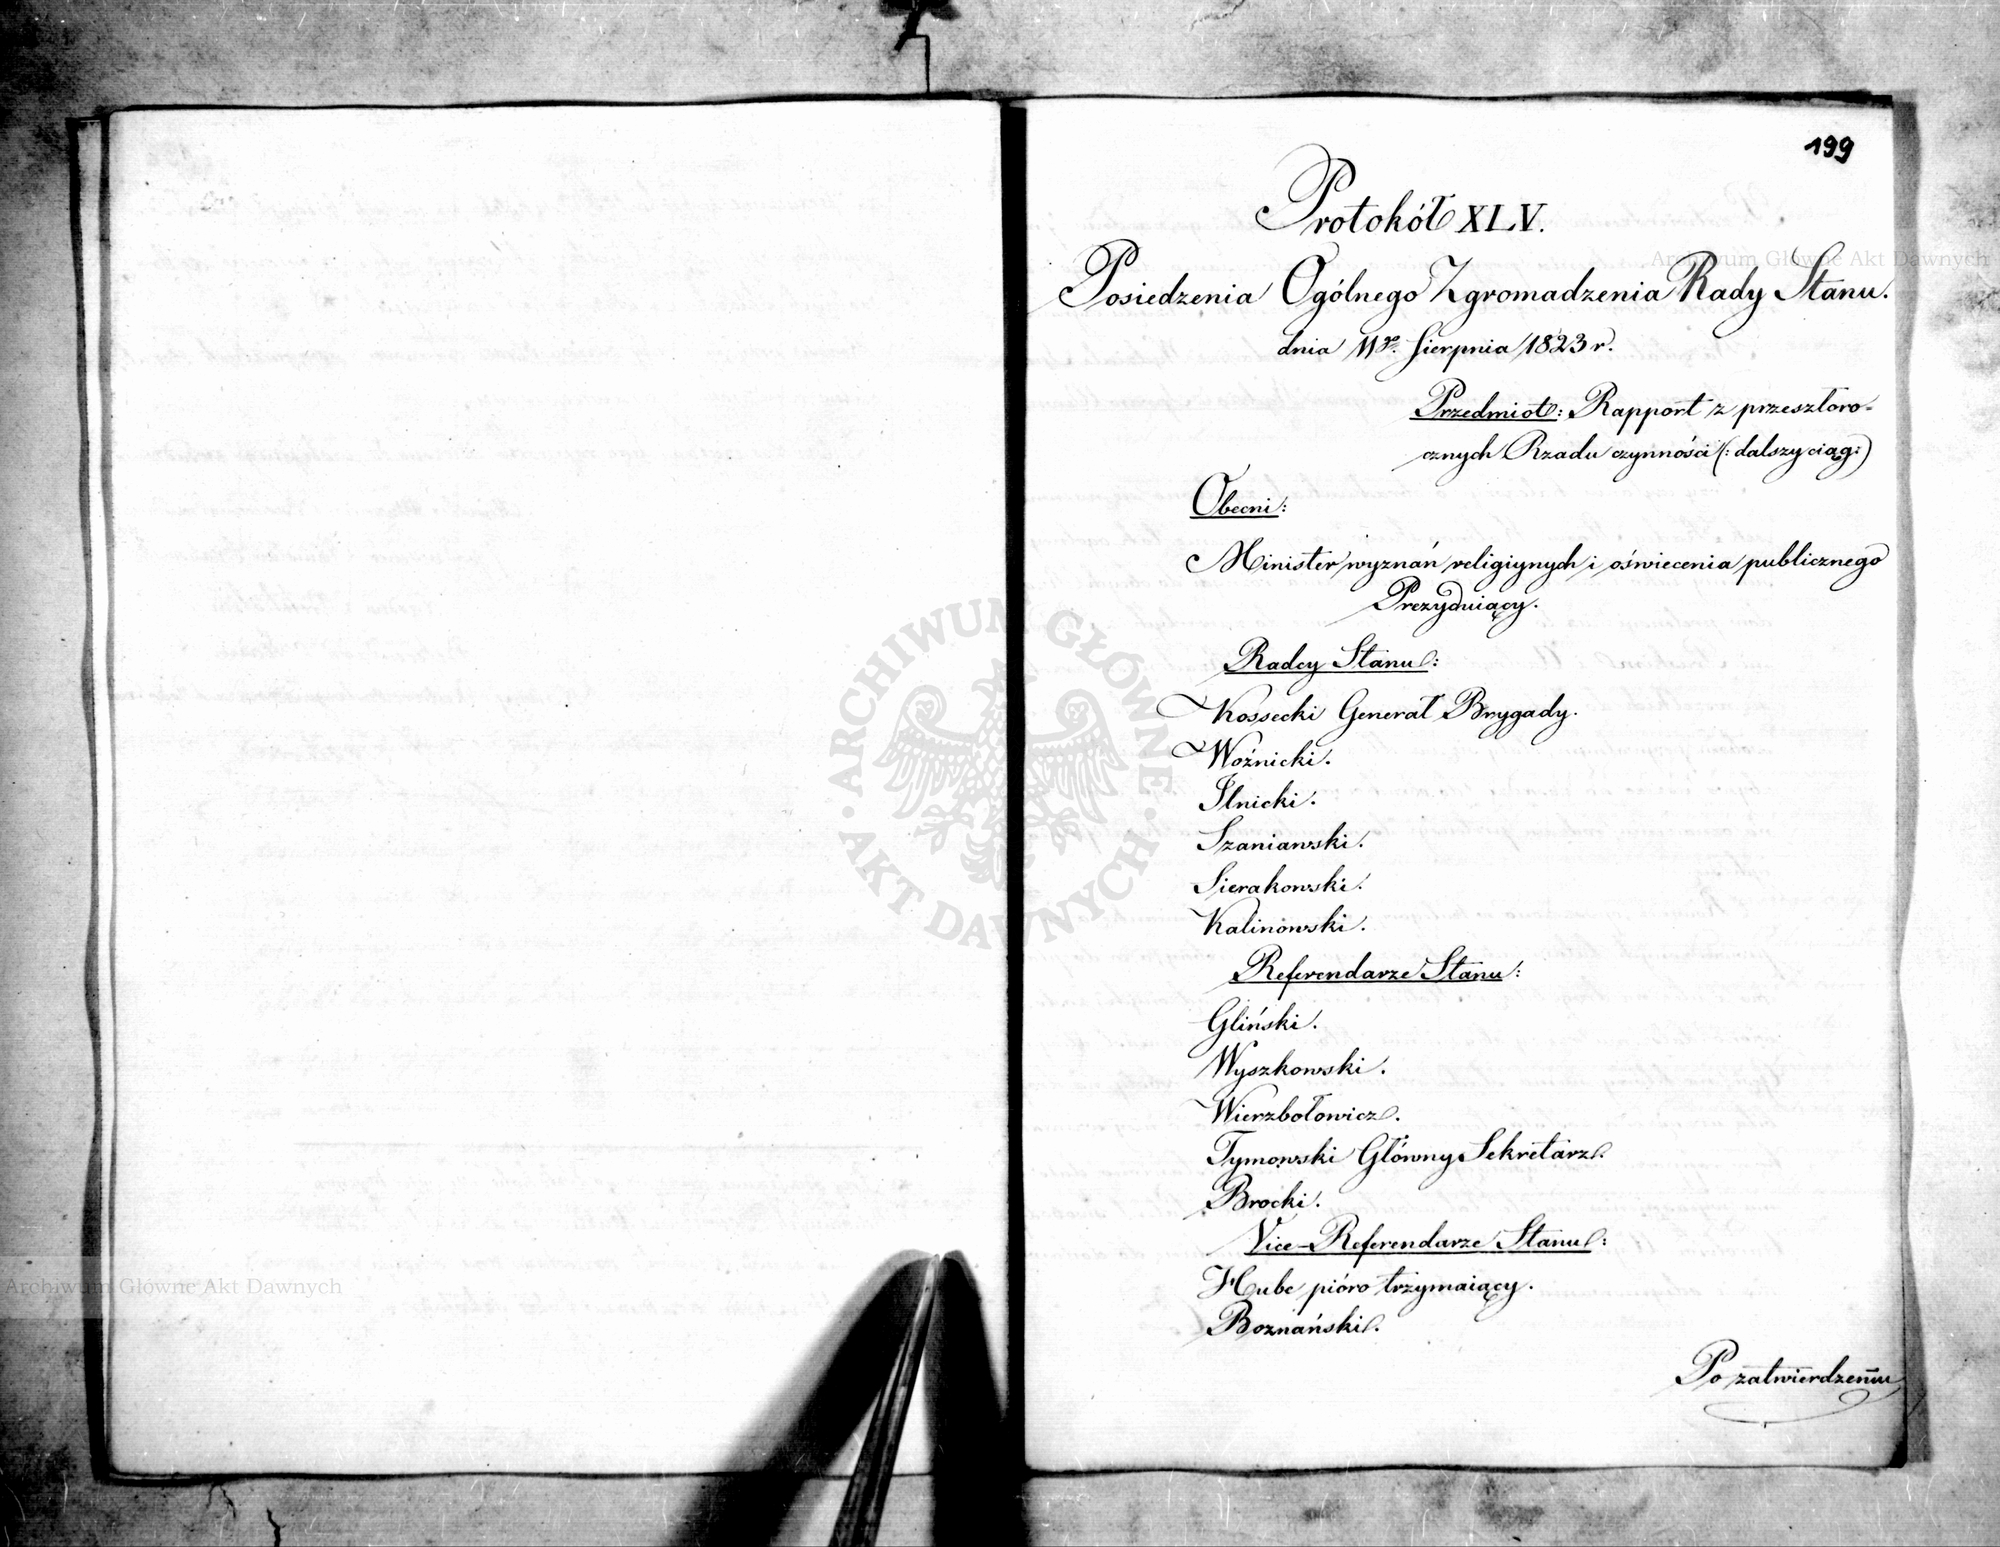 199
Protokół XLV.
Posiedzenia Ogólnego Zgromadzenia Rady Stanu.
dnia 11go. Sierpnia 1823 r.
Przedmiot: Rapport z przeszłoro-
cznych Rządu czynności (: dalszy ciąg :)
Obecni:
Minister wyznań religiynych i oświecenia publicznego
Prezyduiący.
Radcy Stanu:
Kossecki Generał Brygady.
Woźnicki.
Ilnicki.
Szaniawski.
Sierakowski.
Kalinowski.
Referendarze Stanu:
Gliński.
Wyszkowski.
Wierzbołowicz.
Tymowski Główny Sekretarz.
Brocki.
Vice-Referendarze Stanu:
Hube pióro trzymaiący.
Boznański.
Po zatwierdzeniu
Archiwum Główne Akt Dawnych
Archiwum Główne Akt Dawnych
ARCHIWUM GŁÓWNE · AKT DAWNYCH ·